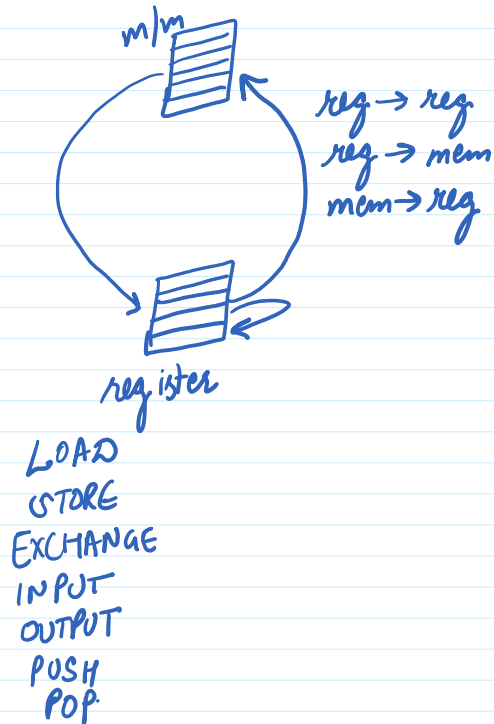 m/m
reg → reg
reg → mem
mem → reg
register
LOAD
STORE
EXCHANGE
INPUT
OUTPUT
PUSH
POP